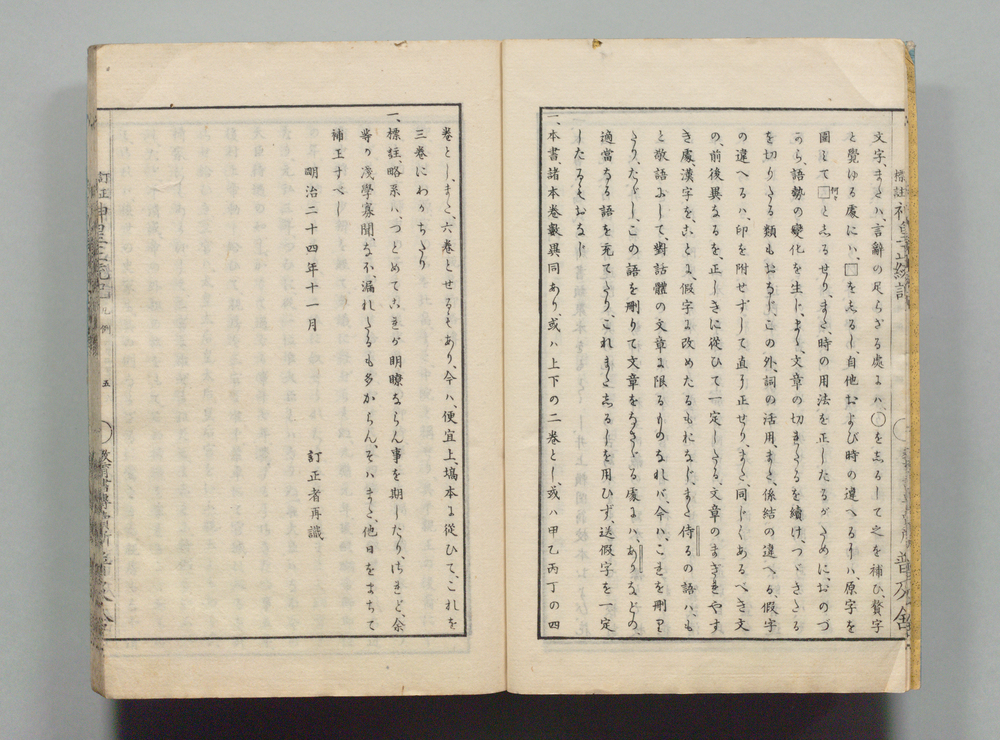 文字、または、言辭の足らざる處よは、○をしるして之を補ひ、贅字
と覺ゆる處には、□をしるし、自他および時の違へるりは、原字を
圍して□何々としるせり、また、時の用法を正したるがために、おのづ
から、語勢の變化を生じ、また、文章の切れたるを續け、つゞきたる
を切りたる類もおなじ、この外、詞の活用、また、係結の違へる、假字
の違へるハ、印を附せずして直に正せり、また、同じくあるべき文
の、前後異なるを、正しきに從ひて一定したる、文章のまぎれやす
き處、漢字を、ことに、假字に改めたるもおなじ、また侍るの語ハ、も
と敬語にして、對話體の文章に限るものなれバ、今ハ、これを刪り
たり、たゞし、この語を刪りて文章をなさゞる處にハ、ありなどの、
適當なる語を充てたり、これまたしるしを用ひず、送假字を一定
したるもおなじ
一、本書、諸本卷數異同あり、或ハ上下の二卷とし、或ハ甲乙丙丁の四
卷とし、また、六卷とせるもあり、今ハ、便宜上、塙本に從ひて、これを
三卷にわかちたり
一、標註、略系ハ、つとめてこれが明瞭ならん事を期したり、されど、余
等の淺學寡聞、なほ、漏れたるも多からん、そハまた、他日をまちて
補正すべし
明治二十四年十一月
訂正者再識
訂正 神皇正統記 凡例
五